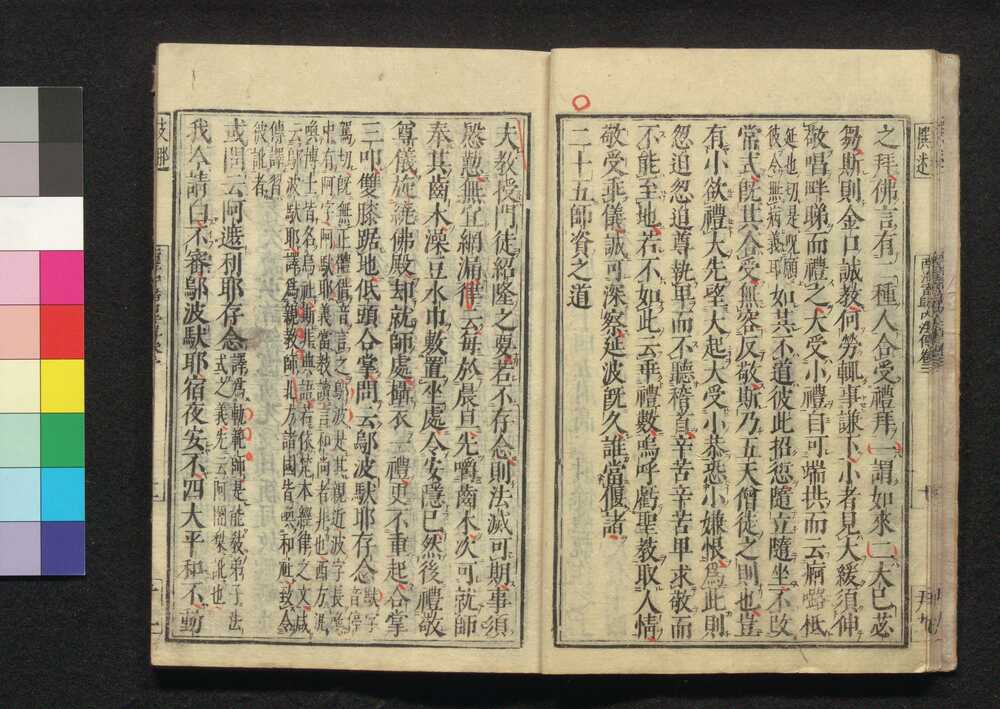 之拜佛言有二種人合受禮拜一謂如來二大已苾
芻斯則金口誠教何勞輒事謙下小者見大緩須伸
敬唱畔睇而禮之大受小禮自可端拱而云痾嚕柢
延也切是呪願
彼令無病義耳如其不道彼此招愆隨立隨坐不改
常式既其合受無容反敬斯乃五天僧徒之則也豈
有小欲禮大先望大起大受小恭恐小嫌恨爲此則
怱迫怱迫尊執卑而不聽稽首辛苦辛苦卑求敬而
不能至地若不如此云乖禮數嗚呼虧聖教取人情
敬受乖儀誠可深察延波既久誰當偃諸
二十五師資之道
夫教授門徒紹隆之要若不存念則法滅可期事須
慇懃無宜網漏律云每於晨旦先嚼齒木次可就師
奉其齒木澡豆水巾敷置坐處令安隱已然後禮敬
尊儀旋繞佛殿却就師處攝衣一禮更不重起合掌
三叩雙膝踞地低頭合掌問云鄔波馱耶存念馱字音停
駕切既無正體借音言之鄔波是其親近波字長喚
中有阿字阿馱耶義當教讀言和尚者非也西方汎
喚博士皆名烏社斯非典語若依梵本經律之文咸
云鄔波馱耶譯爲親教師北方諸國皆喚和社致令
傳譯習
彼訛音
或問云阿遮利耶存念譯爲軌範師是能教弟子法
式之義先云阿闍梨訛也
我今請白不審鄔波馱耶宿夜安不四大平和不動